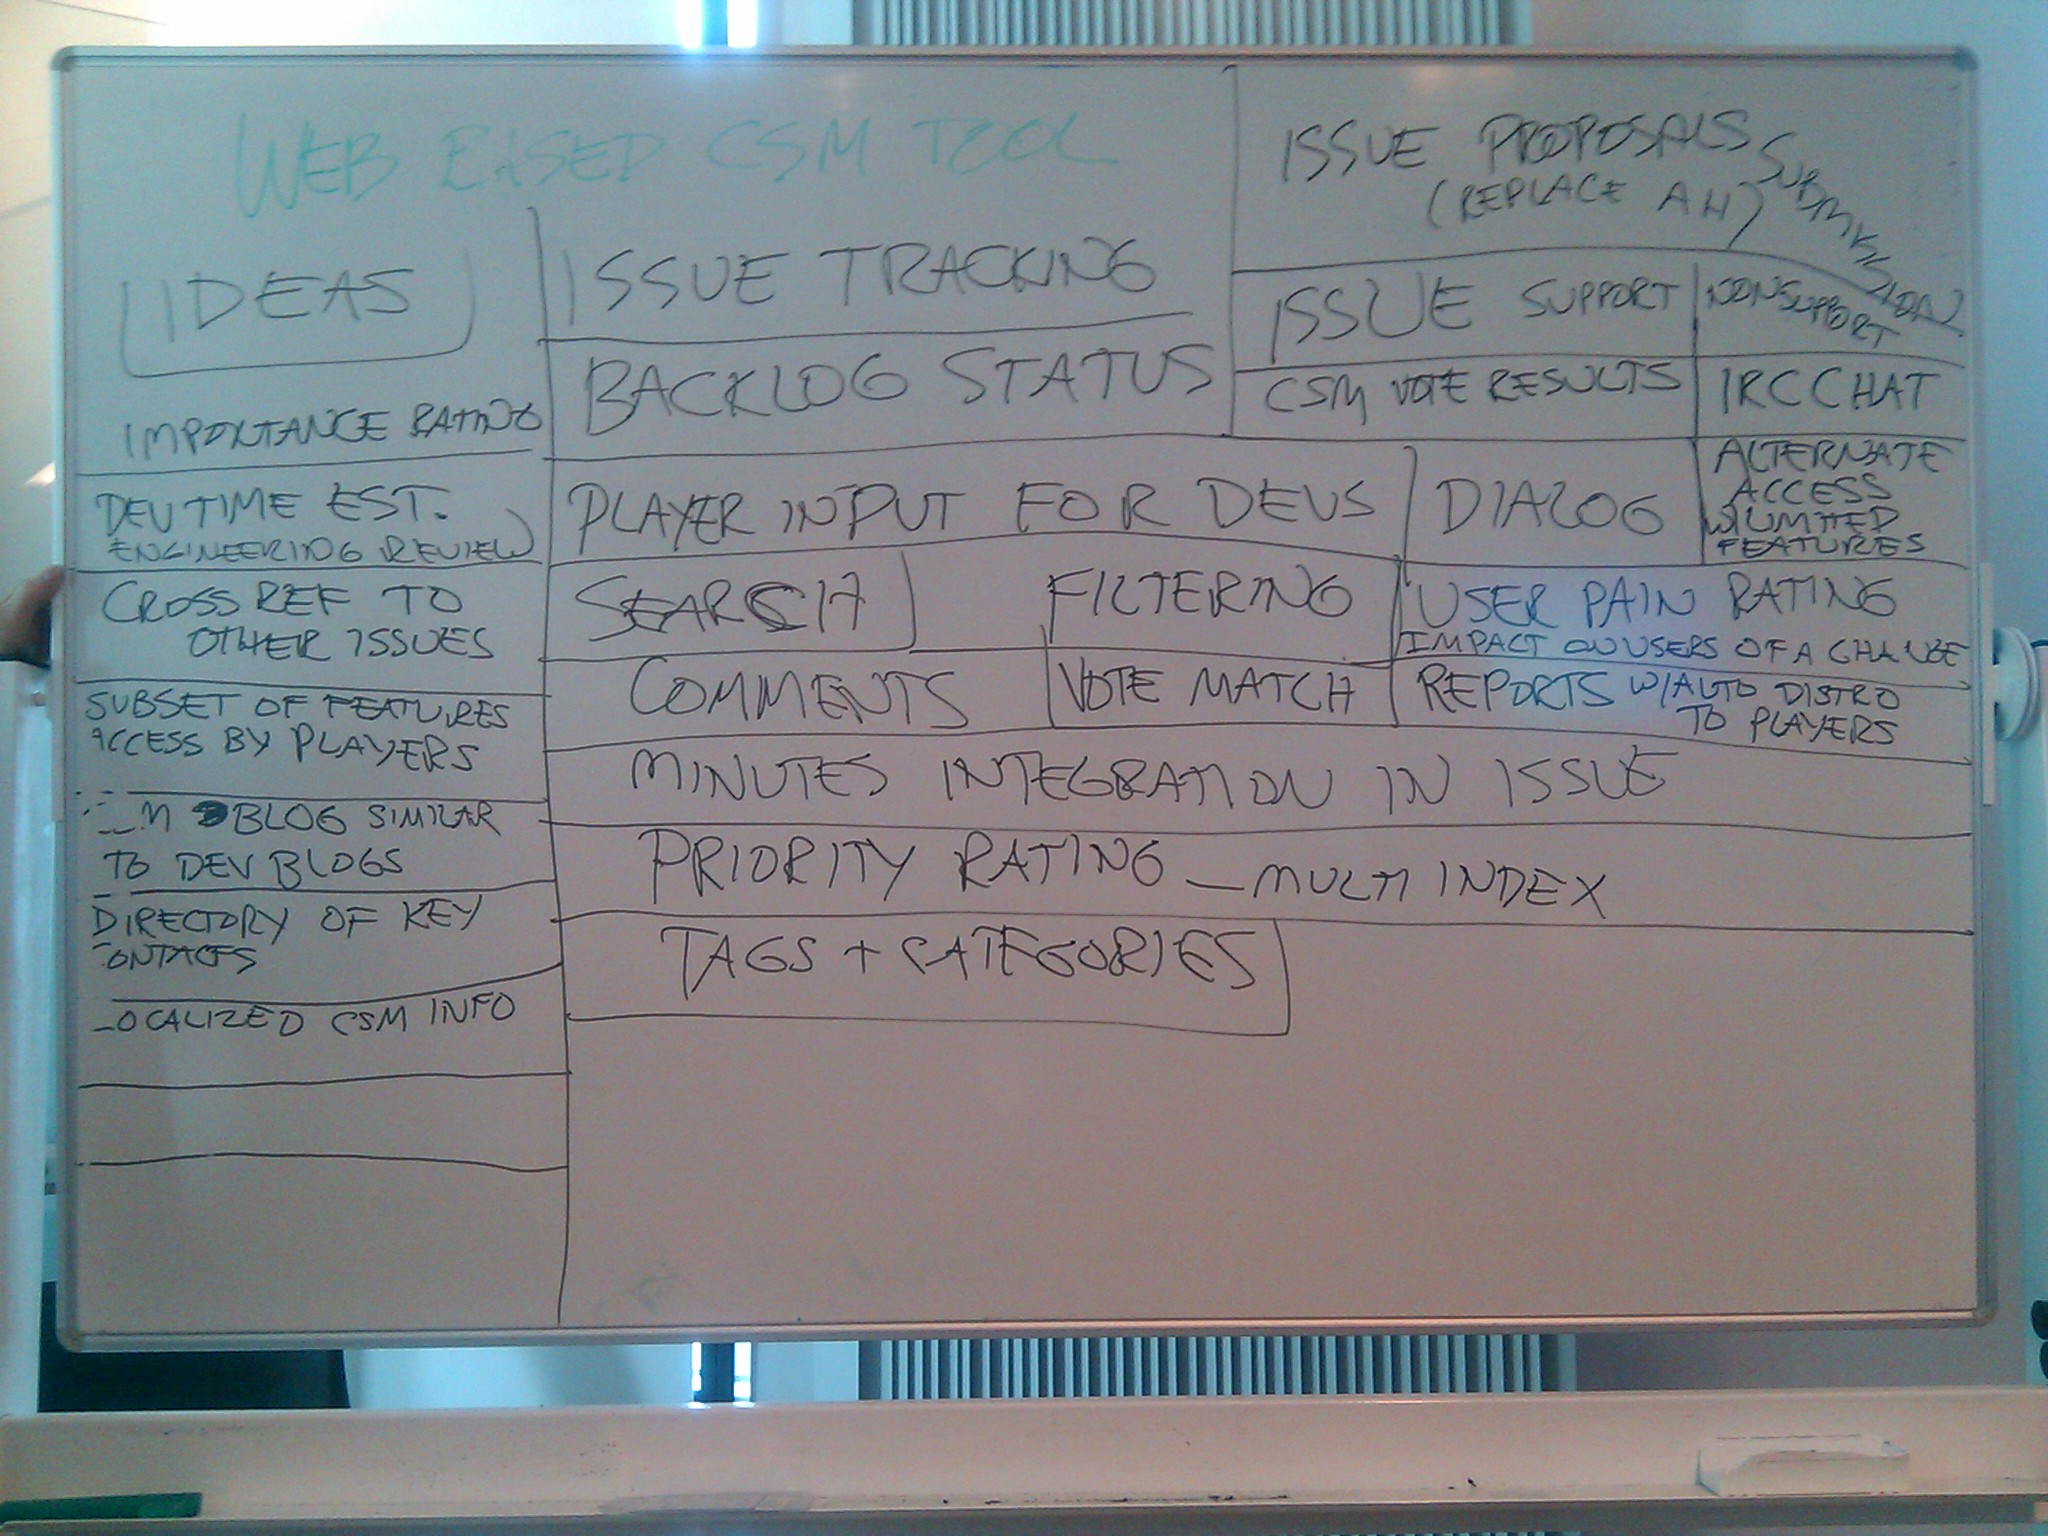 WEB BASED CSM TOOL
IDEAS
IMPORTANCE RATING
DEV TIME EST.
ENGINEERING REVIEW
CROSS REF TO
OTHER ISSUES
SUBSET OF FEATURES
ACCESS BY PLAYERS
BLOG SIMILAR
TO DEV BLOGS
DIRECTORY OF KEY
ONTACTS
OCALIZED CSM INFO
ISSUE TRACKING
BACKLOG STATUS
ISSUE PROPOSALS SUBMISSION
(REPLACE AH)
ISSUE SUPPORT
NONSUPPORT
CSM VOTE RESULTS
IRC CHAT
PLAYER INPUT FOR DEVS
DIALOG
ALTERNATE
ACCESS
W/LIMITED
FEATURES
SEARCH
FILTERING
USER PAIN RATING
IMPACT ON USERS OF A CHANGE
COMMENTS
VOTE MATCH
REPORTS W/AUTO DISTRO
TO PLAYERS
MINUTES INTEGRATION IN ISSUE
PRIORITY RATING - MULTI INDEX
TAGS + CATEGORIES